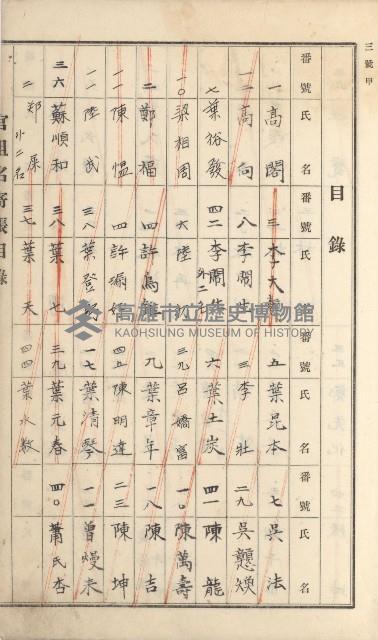 三號甲
目錄
番號 氏名 番號 氏名 番號 氏名 番號 氏名
一 高閣
三 李大
五 葉昆本
七 吳法
一二 高向
八 李開生
三 李壯
二九 吳戇
七 葉裕發
四二 李開生 外二名
六 葉土炭
四一 陳龍
一〇 梁相周
六 陸
三九 呂嬌富
一〇 陳萬壽
二 鄭福
四 許
九 葉章年
一八 陳吉
一一 陳愠
四 許
四五 陳明違
二三 陳坤
一一 陸武
三八 葉登
一七 葉清琴
一一 曾熳未
三六 蘇順和
三八 葉七
三九 葉元春
四〇 蕭氏杏
二 鄭屎 外二名
三七 葉天
四四 葉水教
官租名寄帳目錄
高雄市立歷史博物館
KAOHSIUNG MUSEUM OF HISTORY